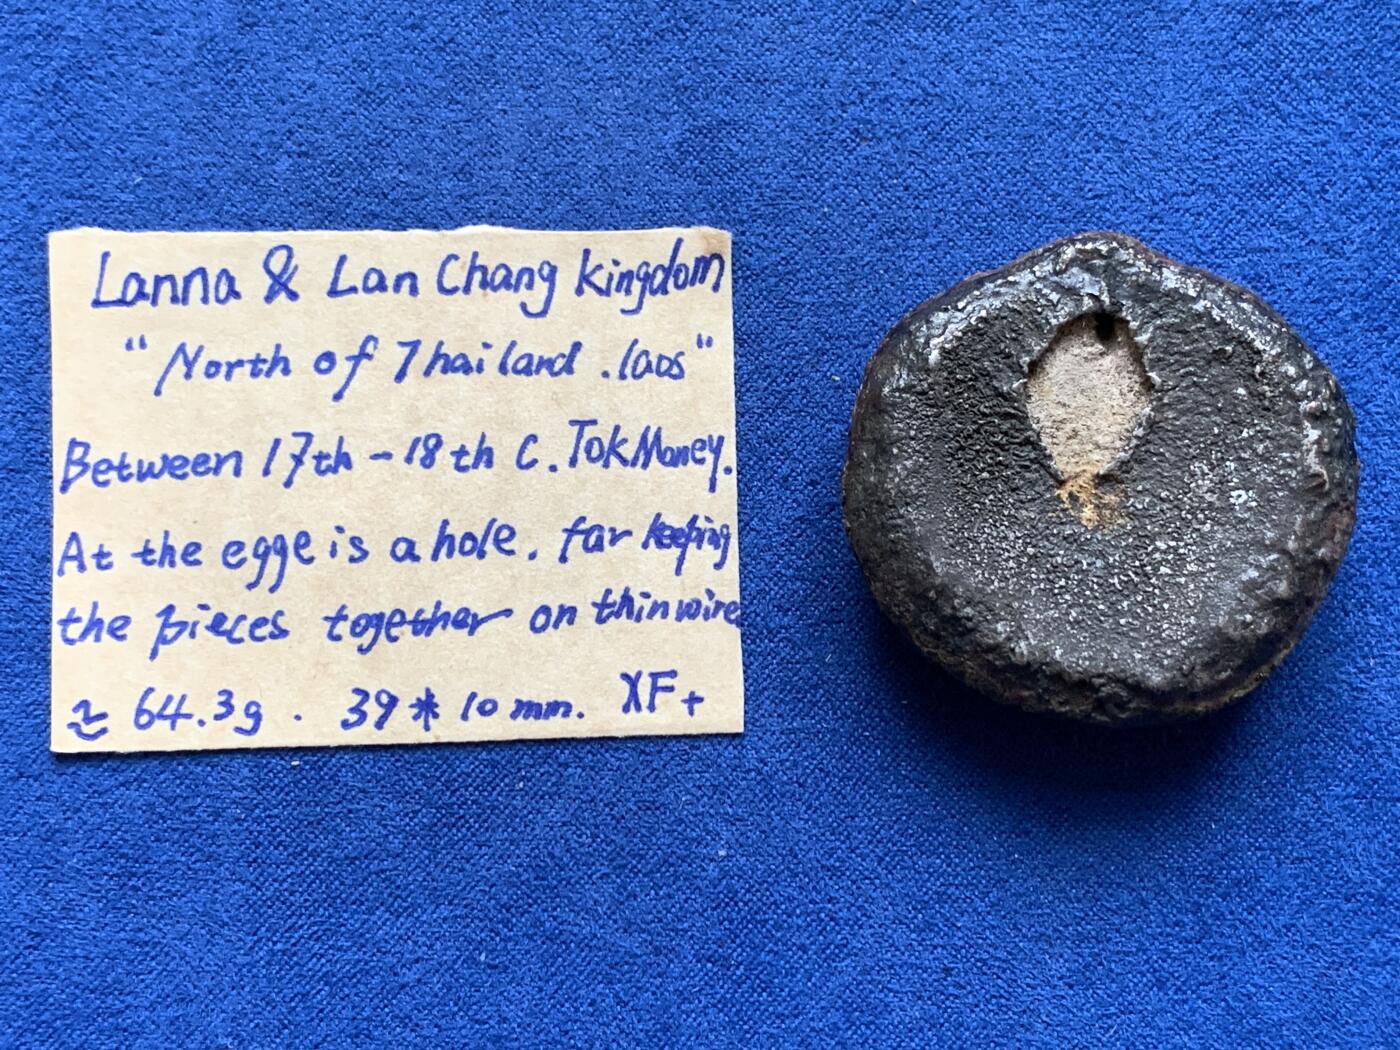 Lanna & Lan Chang kingdom
"North of Thailard . laos"
Between 17th - 18th C. Tok Money.
At the egge is a hole. far keeping
the pieces together on thin wire
≈ 64.3g . 39 * 10 mm. XF+